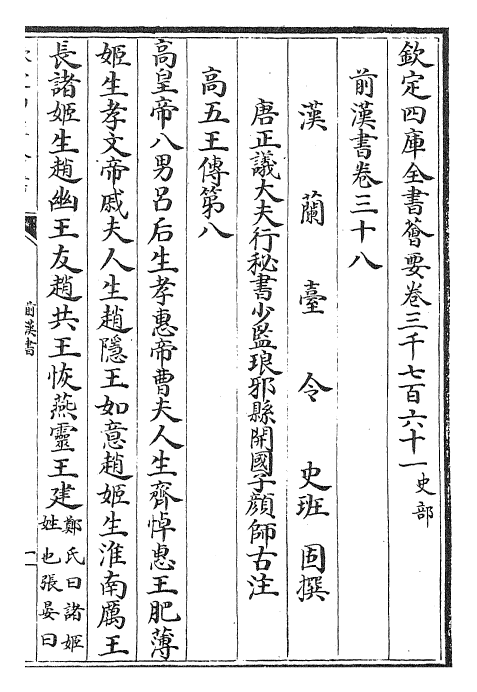 欽定四庫全書薈要卷三千七百六十一史部
前漢書卷三十八
漢蘭臺令史班固撰
唐正議大夫行秘書少監琅邪縣開國子顔師古注
高五王傳第八
高皇帝八男吕后生孝惠帝曹夫人生齊悼惠王肥薄
姬生孝文帝戚夫人生趙隱王如意趙姬生淮南厲王
長諸姬生趙幽王友趙共王恢燕靈王建鄭氏曰諸姬
姓也張晏曰
前漢書
一